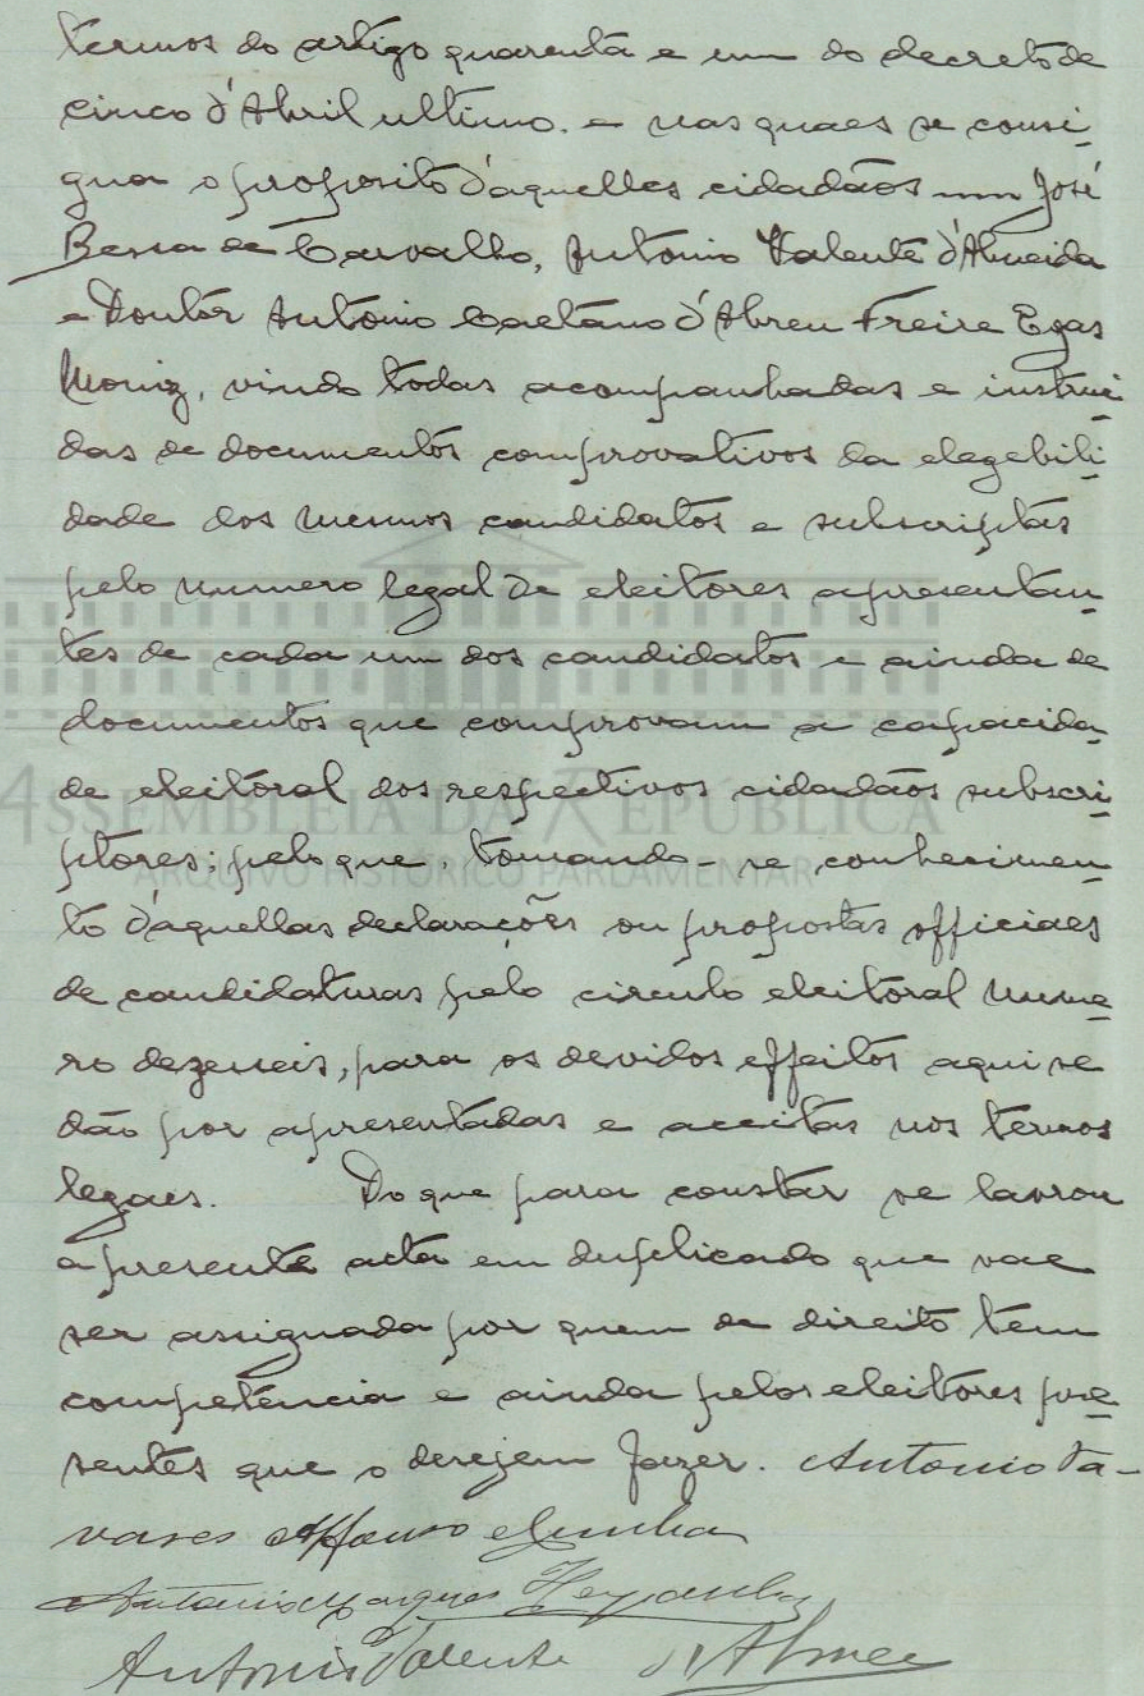 termos do artigo quarenta e um do decreto de
cinco d'Abril ultimo. e nas quaes se consi-
gna o proposito d'aquelles cidadãos um José
Bessa de Carvalho, Antonio Valente d'Almeida
e Doutôr Antonio Caetano d'Abreu Freire Egas
Moniz, vindo todas acompanhadas e instrui-
das de documentos comprovativos da elegebili-
dade dos mesmos candidatos e subscriptas
pelo numero legal de eleitores apresentan-
tes de cada um dos candidatos e ainda de
documentos que comprovam a capacida-
de eleitoral dos respectivos cidadãos subscri-
ASSEMBLEIA DA REPÚBLICA
ptores; pelo que, tomando-se conhecimen-
ARQUIVO HISTÓRICO PARLAMENTAR
to d'aquellas declarações ou propostas officiaes
de candidaturas pelo circulo eleitoral nume-
ro dezeseis, para os devidos effeitos aqui se
dão por apresentadas e acceitas nos termos
legaes. Do que para constar se lavrou
a presente acta em duplicado que vae
ser assignada por quem de direito tem
competencia e ainda pelos eleitores pre-
sentes que o desejem fazer. Antonio Ta-
vares Affonso e Cunha
Antonio Marques
Antonio Valente d'Almei